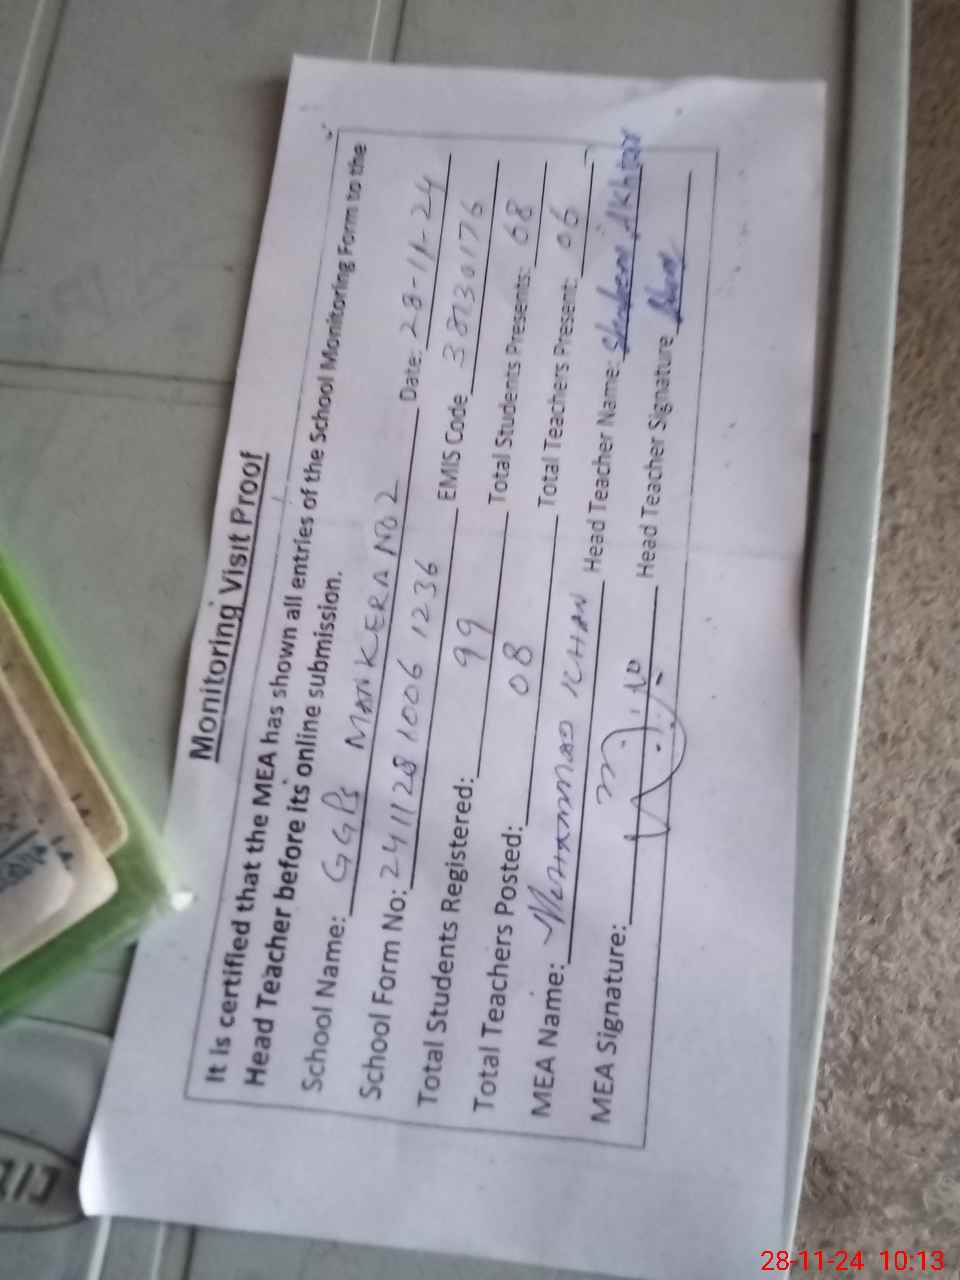 Monitoring Visit Proof
It is certified that the MEA has shown all entries of the School Monitoring Form to the
Head Teacher before its online submission.
School Name: GGPS MANKERA NO 2 Date: 28-11-24
School Form No: 241128 1006 1236 EMIS Code 38130176
Total Students Registered: 99 Total Students Presents: 68
Total Teachers Posted: 08 Total Teachers Present: 06
MEA Name: MUHAMMAD KHAN Head Teacher Name: Akhtar
MEA Signature: Head Teacher Signature
28-11-24 10:13